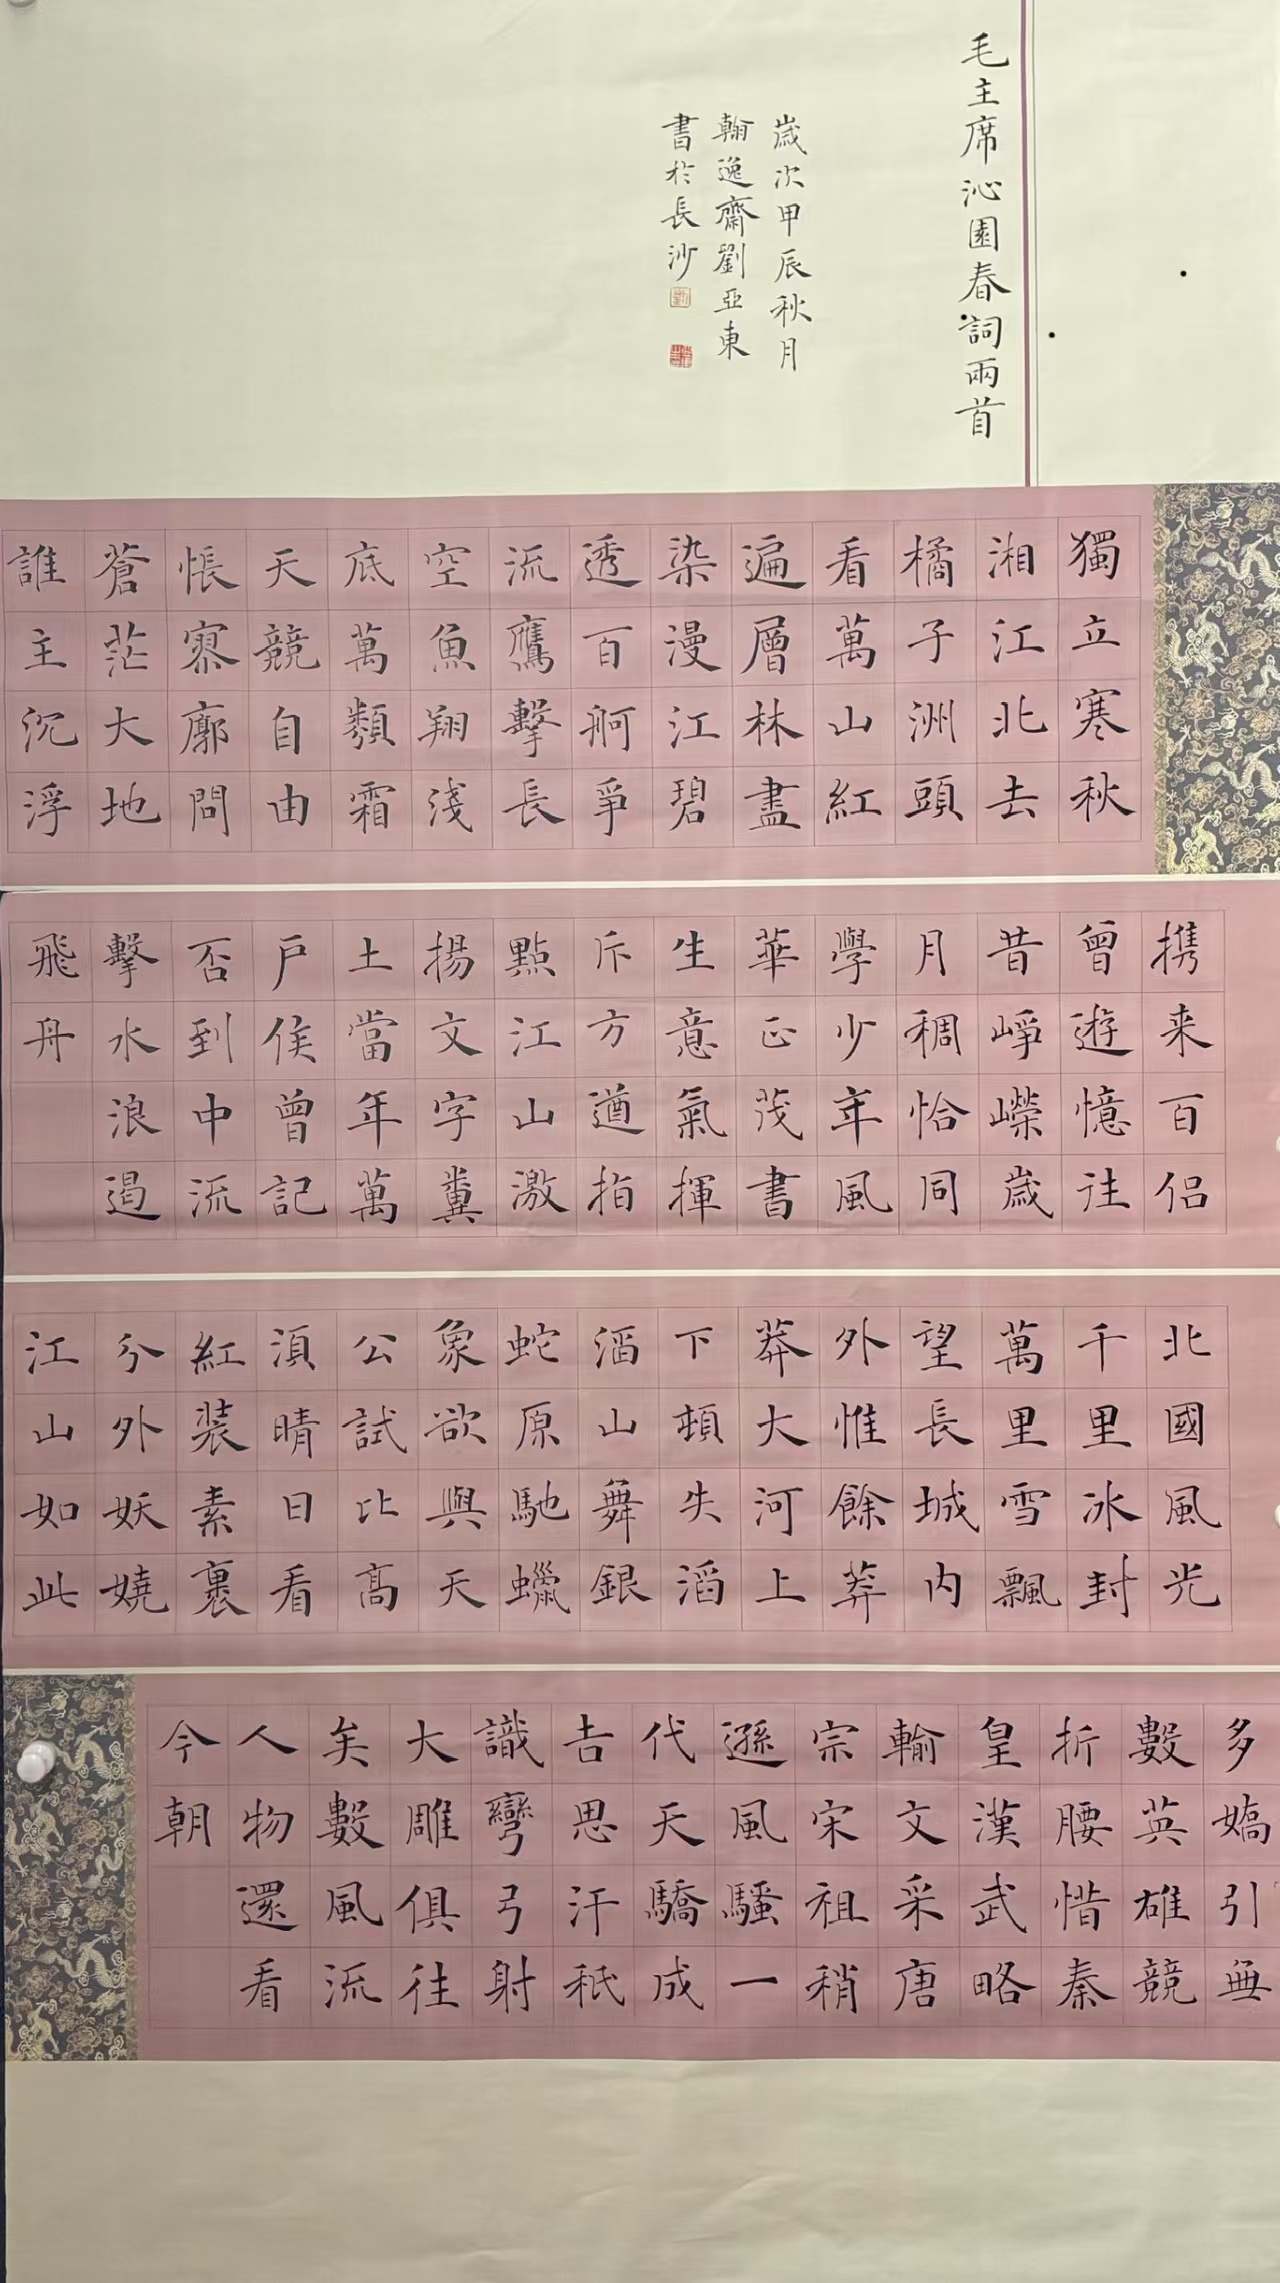 毛主席沁園春詞兩首
歲次甲辰秋月
翰逸齋劉亞東
書於長沙
獨立寒秋
湘江北去
橘子洲頭
看萬山紅
遍層林盡
染漫江碧
透百舸爭
流鷹擊長
空魚翔淺
底萬類霜
天競自由
悵寥廓問
蒼茫大地
誰主沉浮
携来百侣
曾遊憶往
昔崢嶸歲
月稠恰同
學少年風
華正茂書
生意氣揮
斥方遒指
點江山激
揚文字糞
土當年萬
户侯曾記
否到中流
擊水浪遏
飛舟
北國風光
千里冰封
萬里雪飄
望長城内
外惟餘莽
莽大河上
下頓失滔
滔山舞銀
蛇原馳蠟
象欲與天
公試比高
須晴日看
紅裝素裹
分外妖嬈
江山如此
多嬌引無
數英雄競
折腰惜秦
皇漢武略
輸文采唐
宗宋祖稍
遜風騷一
代天驕成
吉思汗祇
識彎弓射
大雕俱往
矣數風流
人物還看
今朝